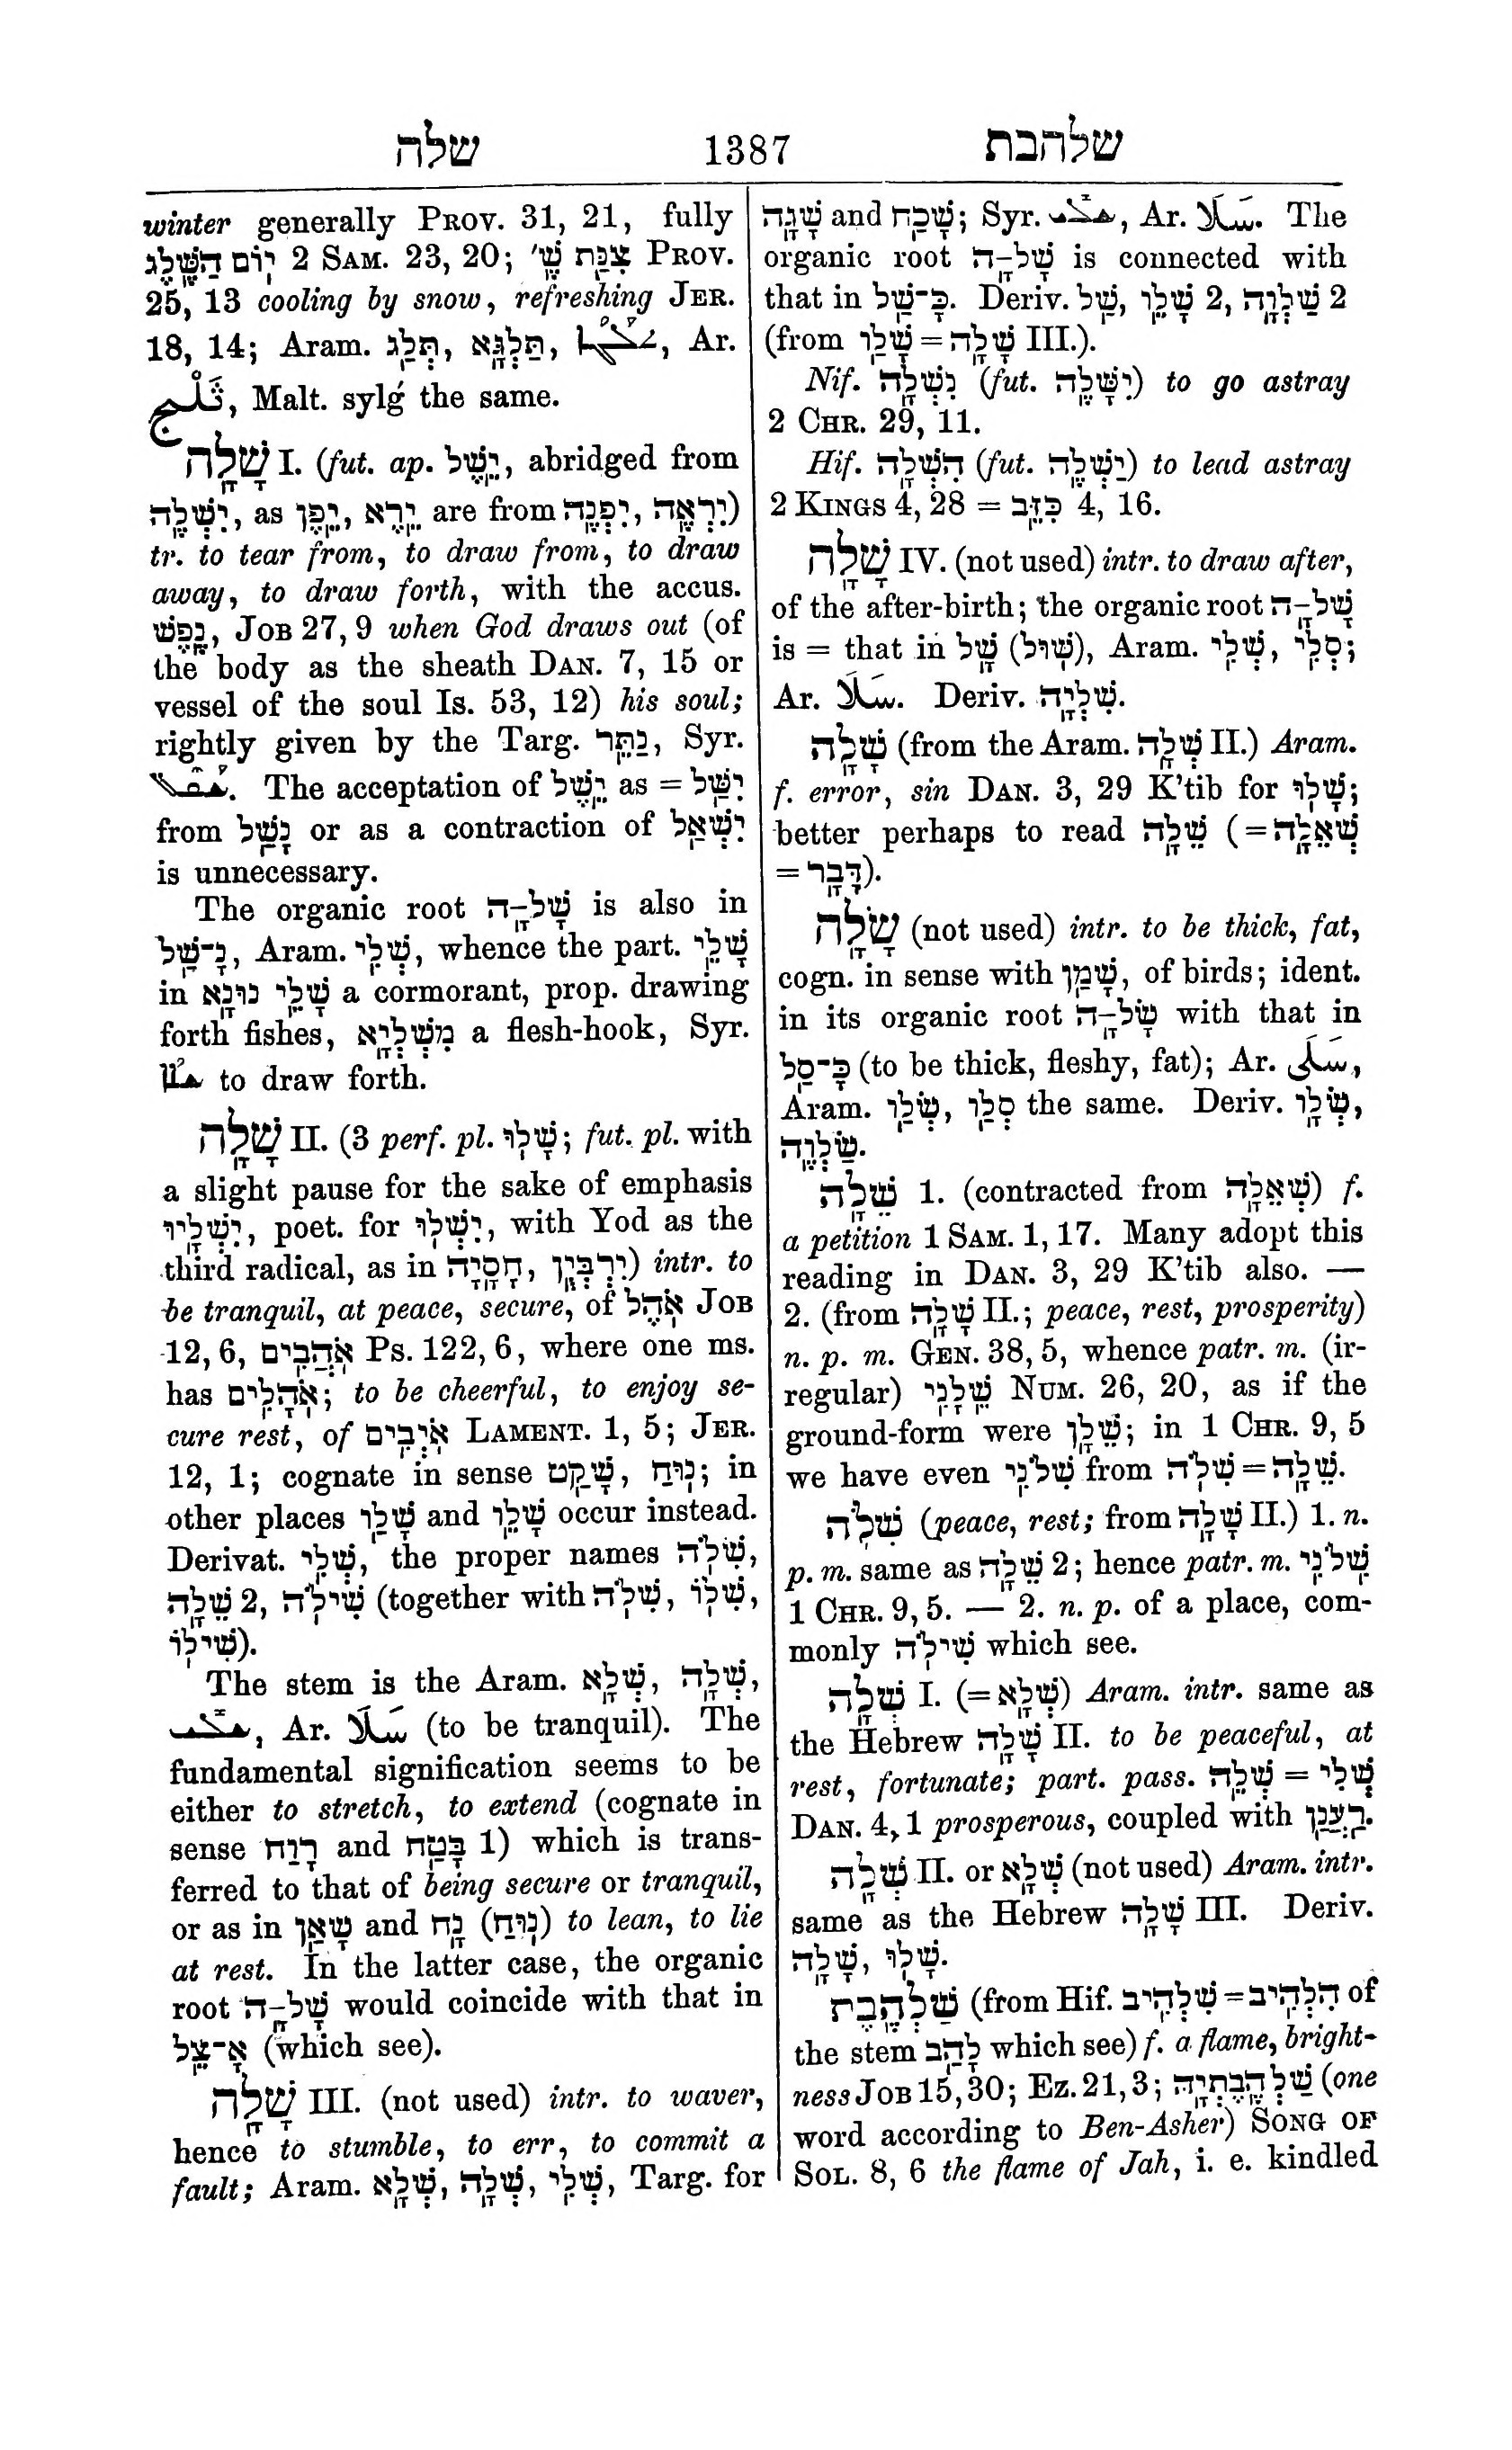 שלה 1387 שלהבת
winter generally PROV. 31, 21, fully
יוֹם הַשֶּׁלֶג 2 SAM. 23, 20; צִנַּת שֶׁ' PROV.
25, 13 cooling by snow, refreshing JER.
18, 14; Aram. תְּלַג, תַּלְגָּא, Ar.
ثَلْج, Malt. sylǵ the same.
שָׁלָה I. (fut. ap. יֵשֶׁל, abridged from
יִשְׁלֶה, as יֵפֶן, יֵרֶא are from יִפְנֶה, יִרְאֶה)
tr. to tear from, to draw from, to draw
away, to draw forth, with the accus.
נֶפֶשׁ, JOB 27, 9 when God draws out (of
the body as the sheath DAN. 7, 15 or
vessel of the soul Is. 53, 12) his soul;
rightly given by the Targ. נַתֵּר, Syr.
The acceptation of יֵשֶׁל as = יִשַּׁל
from נָשַׁל or as a contraction of יִשְׁאַל
is unnecessary.
The organic root שָׁל־ָה is also in
נָ־שַׁל, Aram. שְׁלִי, whence the part. שָׁלֵי
in שָׁלֵי נוּנָא a cormorant, prop. drawing
forth fishes, מִשְׁלְיָא a flesh-hook, Syr.
to draw forth.
שָׁלָה II. (3 perf. pl. שָׁלוּ; fut. pl. with
a slight pause for the sake of emphasis
יִשְׁלָיוּ, poet. for יִשְׁלוּ, with Yod as the
third radical, as in חָסָיָה, יִרְבְּיֻן) intr. to
be tranquil, at peace, secure, of אֹהֶל JOB
12, 6, אֹהֲבִים Ps. 122, 6, where one ms.
has אֹהָלִים; to be cheerful, to enjoy se-
cure rest, of אֹיְבִים LAMENT. 1, 5; JER.
12, 1; cognate in sense שָׁקַט, נוּחַ; in
other places שָׁלַו and שָׁלֵו occur instead.
Derivat. שְׁלִי, the proper names שִׁלֹה,
שֵׁלָה 2, שִׁילֹה (together with שִׁלֹה, שִׁלוֹ,
שִׁילוֹ).
The stem is the Aram. שְׁלָא, שְׁלָה,
Ar. سَلَا (to be tranquil). The
fundamental signification seems to be
either to stretch, to extend (cognate in
sense רָוַח and בָּטַח 1) which is trans-
ferred to that of being secure or tranquil,
or as in שָׁאַן and נָח (נוּחַ) to lean, to lie
at rest. In the latter case, the organic
root שָׁל־ָה would coincide with that in
אָ־צֵל (which see).
שָׁלָה III. (not used) intr. to waver,
hence to stumble, to err, to commit a
fault; Aram. שְׁלָא, שְׁלָה, שְׁלִי, Targ. for
שָׁגָה and שָׁכַח; Syr. Ar. سَلَا. The
organic root שָׁל־ָה is connected with
that in כָּ־שַׁל. Deriv. שַׁל, שָׁלֵו 2, שַׁלְוָה 2
(from שָׁלַו = שָׁלָה III.).
Nif. נִשְׁלָה (fut. יִשָּׁלֶה) to go astray
2 CHR. 29, 11.
Hif. הִשְׁלָה (fut. יַשְׁלֶה) to lead astray
2 KINGS 4, 28 = כִּזֵּב 4, 16.
שָׁלָה IV. (not used) intr. to draw after,
of the after-birth; the organic root שָׁל־ָה
is = that in שָׁל (שׁוּל), Aram. שְׁלִי, סְלִי;
Ar. سَلَا. Deriv. שִׁלְיָה.
שָׁלָה (from the Aram. שְׁלָה II.) Aram.
f. error, sin DAN. 3, 29 K'tib for שָׁלוּ;
better perhaps to read שֵׁלָה (= שְׁאֵלָה
= דָּבָר).
שָׂלָה (not used) intr. to be thick, fat,
cogn. in sense with שָׁמַן, of birds; ident.
in its organic root שָׂל־ָה with that in
כָּ־סַל (to be thick, fleshy, fat); Ar. سَلَى,
Aram. שְׂלַו, סְלַו the same. Deriv. שְׂלָו,
שַׂלְוֶה.
שֵׁלָה 1. (contracted from שְׁאֵלָה) f.
a petition 1 SAM. 1, 17. Many adopt this
reading in DAN. 3, 29 K'tib also. —
2. (from שָׁלָה II.; peace, rest, prosperity)
n. p. m. GEN. 38, 5, whence patr. m. (ir-
regular) שֵׁלָנִי NUM. 26, 20, as if the
ground-form were שֵׁלָן; in 1 CHR. 9, 5
we have even שִׁלֹנִי from שִׁלֹה = שֵׁלָה.
שִׁלֹה (peace, rest; from שָׁלָה II.) 1. n.
p. m. same as שֵׁלָה 2; hence patr. m. שִׁלֹנִי
1 CHR. 9, 5. — 2. n. p. of a place, com-
monly שִׁילֹה which see.
שְׁלָה I. (= שְׁלָא) Aram. intr. same as
the Hebrew שָׁלָה II. to be peaceful, at
rest, fortunate; part. pass. שְׁלֵה = שְׁלִי
DAN. 4, 1 prosperous, coupled with רַעֲנַן.
שְׁלָה II. or שְׁלָא (not used) Aram. intr.
same as the Hebrew שָׁלָה III. Deriv.
שָׁלָה, שָׁלוּ.
שַׁלְהֶבֶת (from Hif. שִׁלְהִיב = הִלְהִיב of
the stem לָהַב which see) f. a flame, bright-
ness JOB 15, 30; EZ. 21, 3; שַׁלְהֶבֶתְיָהּ (one
word according to Ben-Asher) SONG OF
SOL. 8, 6 the flame of Jah, i. e. kindled